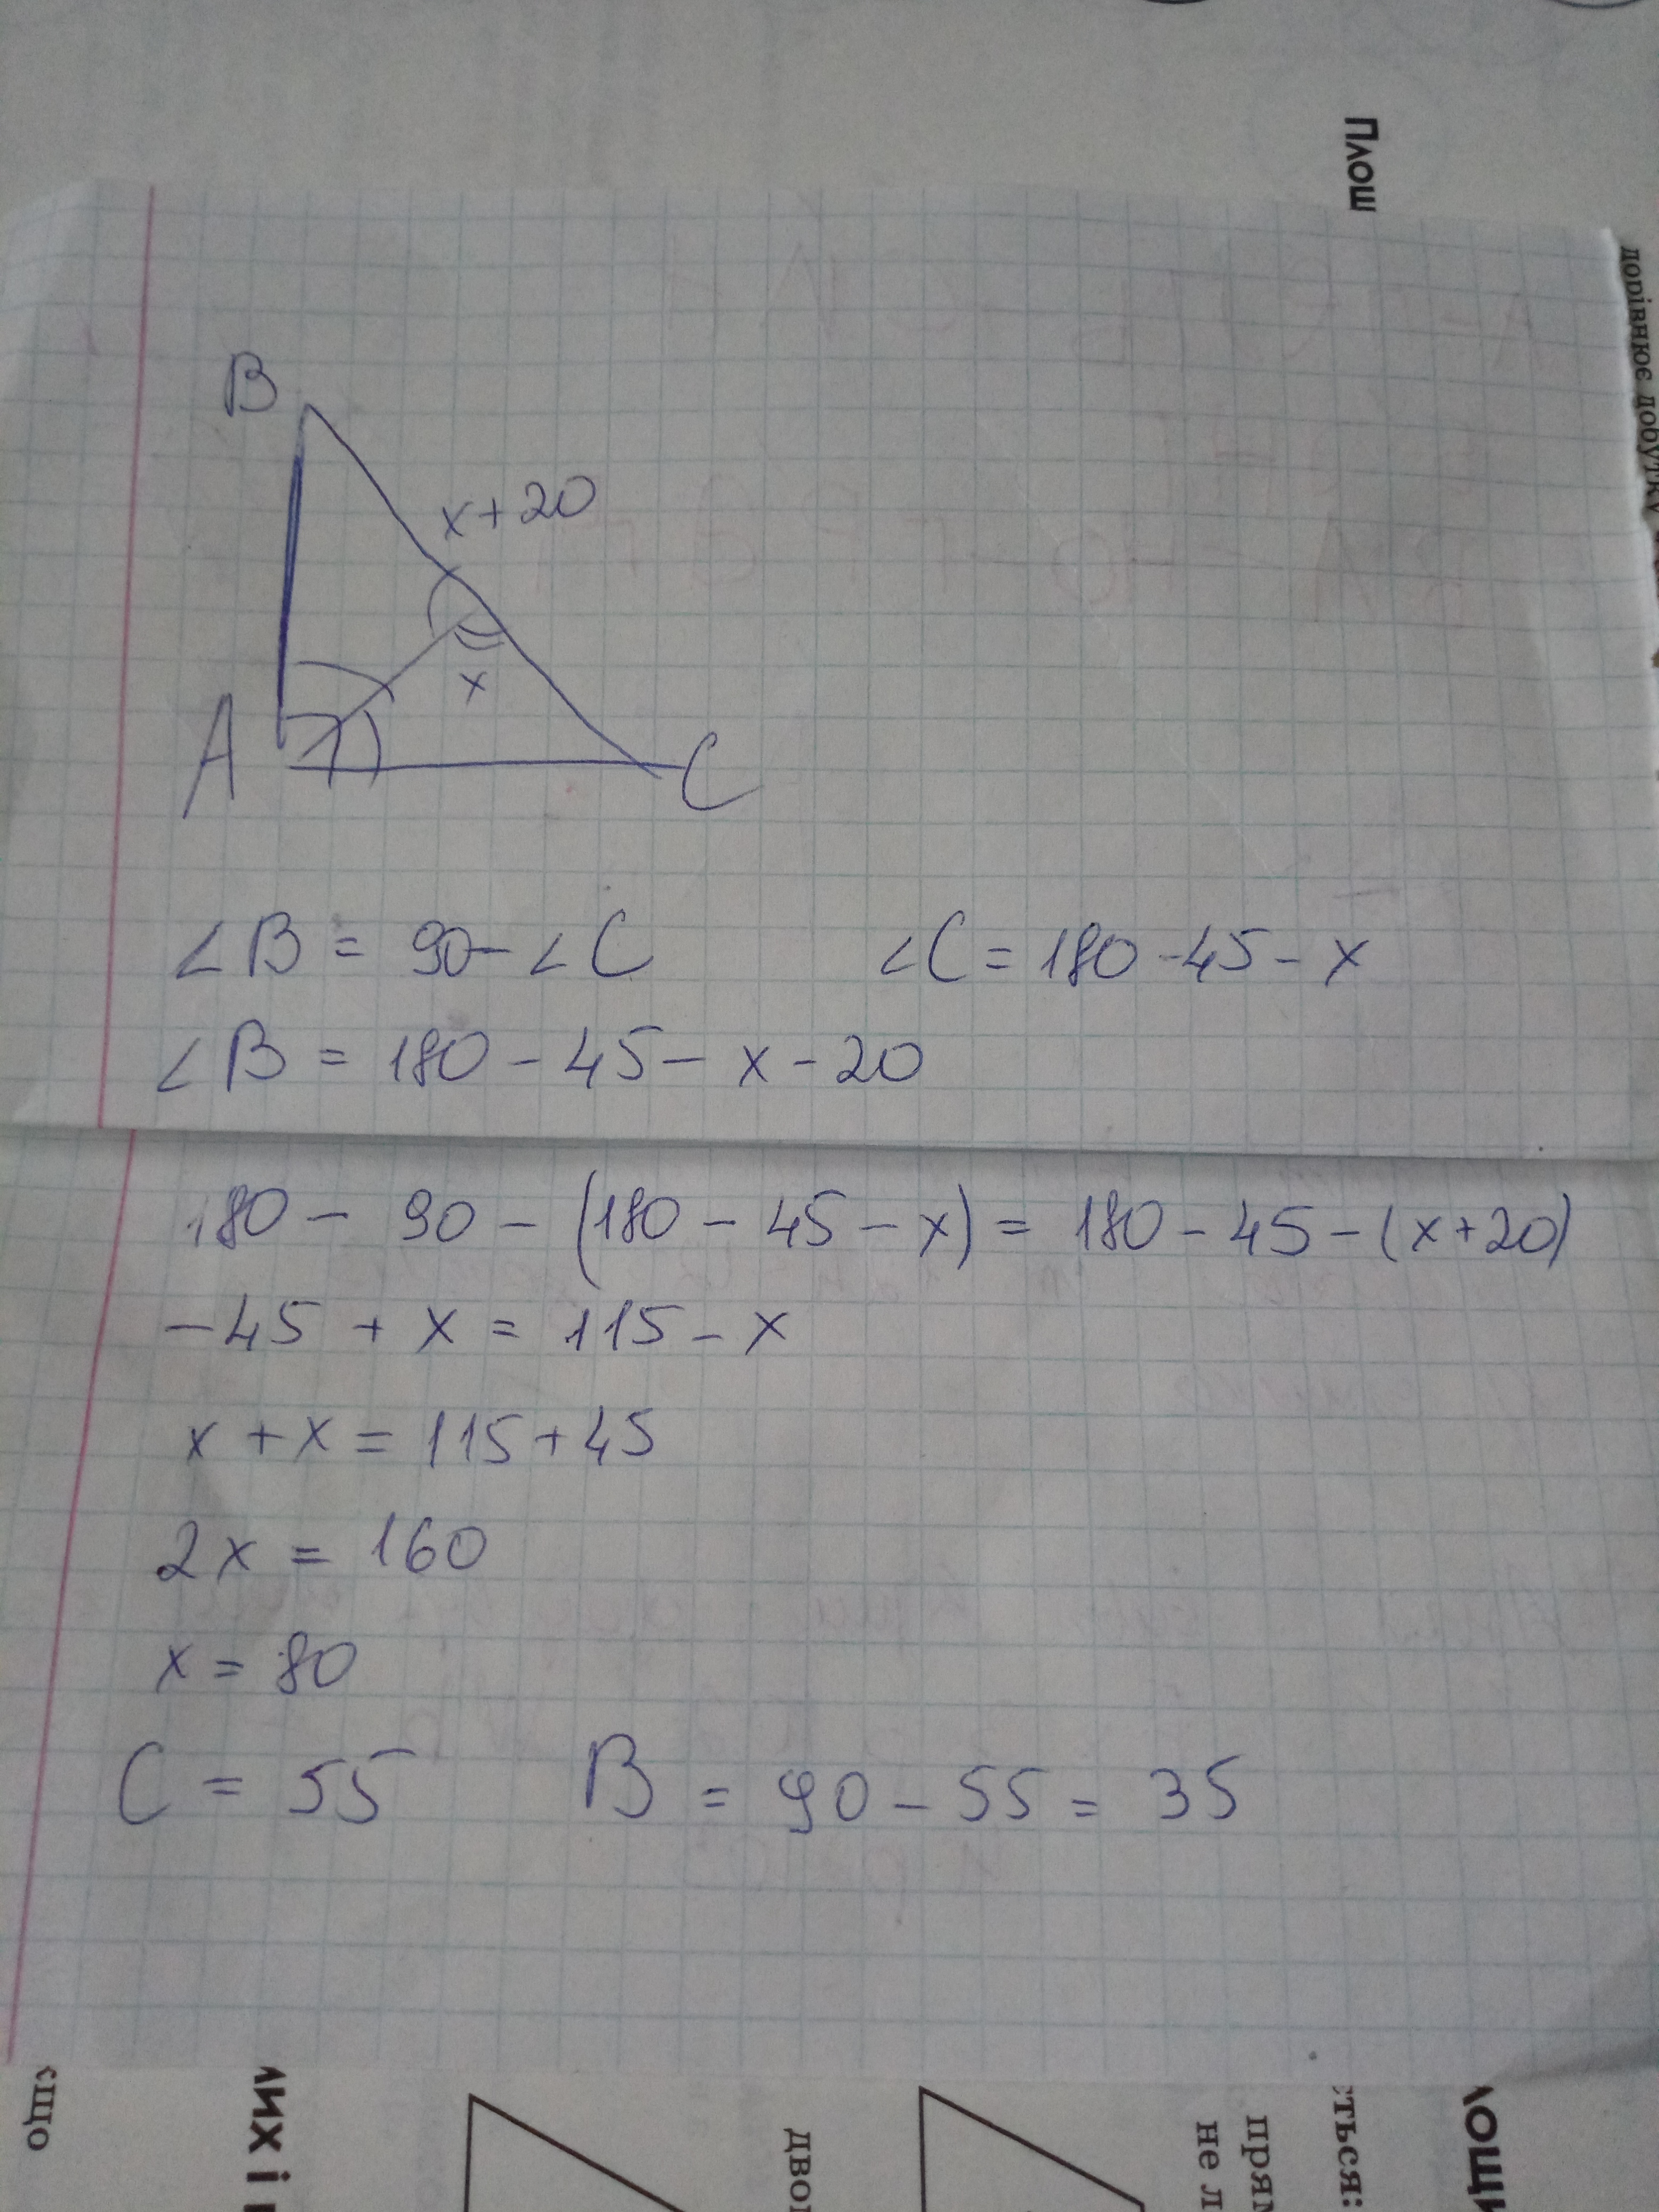 Площ
дорівнює добутку
B
x+20
x
A
C
∠B = 90-∠C
∠C = 180-45-x
∠B = 180-45-x-20
180 - 90 - (180 - 45 - x) = 180 - 45 - (x+20)
-45 + x = 115 - x
x + x = 115 + 45
2x = 160
x = 80
C = 55
B = 90 - 55 = 35
двоп
прям
не л
ться: